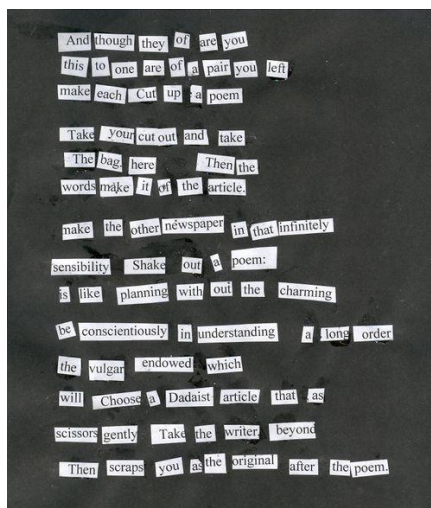 And though they of are you
this to one are of a pair you left
make each Cut up a poem
Take your cut out and take
The bag. here Then the
words make it of the article.
make the other newspaper in that infinitely
sensibility Shake out a poem:
is like planning with out the charming
be conscientiously in understanding a long order
the vulgar endowed which
will Choose a Dadaist article that as
scissors gently Take the writer, beyond
Then scraps you as the original after the poem.